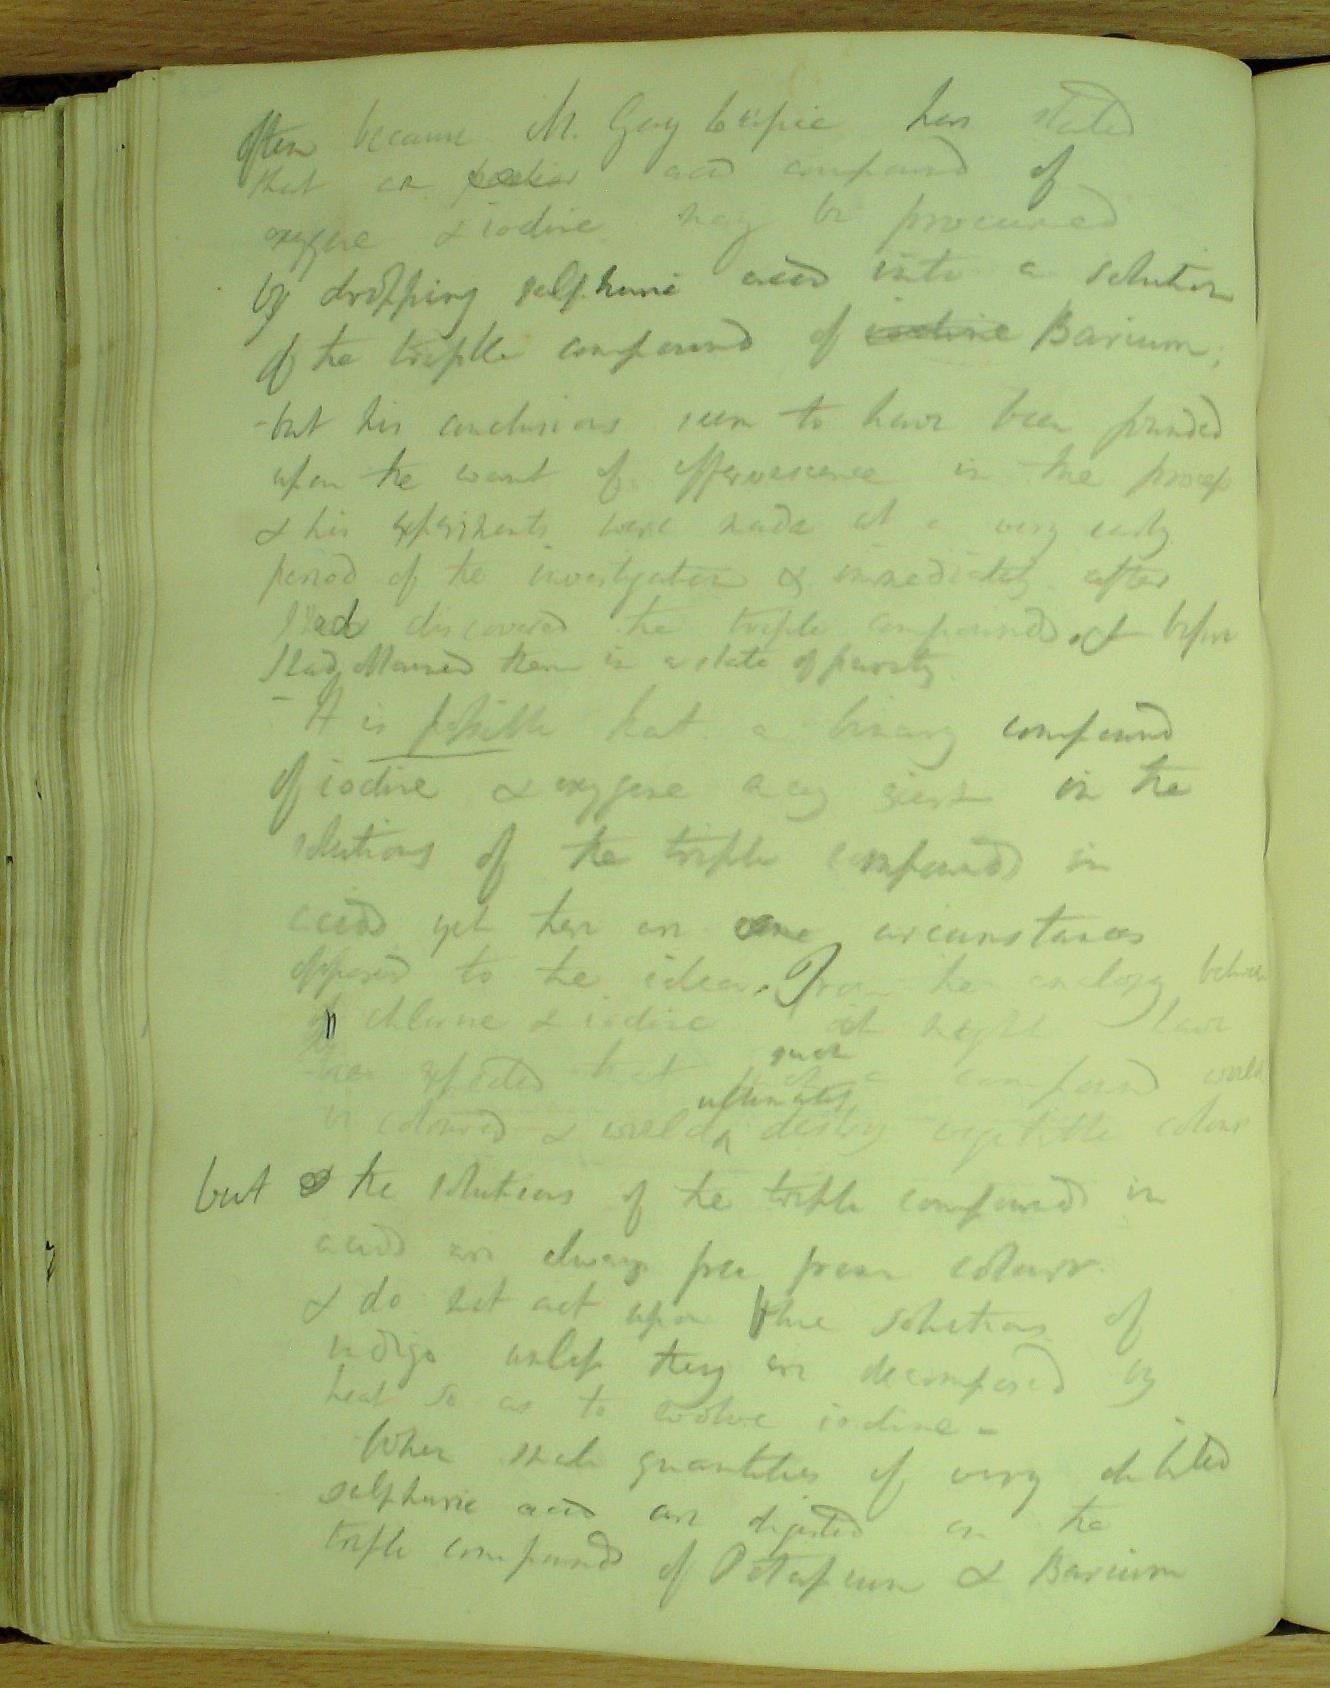 often because M. Gay Lussac has stated
that an acid compound of
oxygene & iodine may be procured
by dropping sulphuric acid into a solution
of the triple compound of iodine Barium,
- but his conclusions seem to have been founded
upon the want of effervescence in the process
& his experiments were made at a very early
period of the investigation & immediately after
I had discovered the triple compounds & before
I had obtained them in a state of purity.
- It is possible that a binary compound
of iodine & oxygene may exist in the
solutions of the triple compounds in
acids yet there are some circumstances
opposed to the idea. From the analogy between
chlorine & iodine it might have
been expected that such a compound would
be coloured & would ultimately destroy vegetable colours
but the solutions of the triple compounds in
acids are always free from colour
& do not act upon blue solutions of
indigo unless they are decomposed by
heat so as to evolve iodine -
When small quantities of very diluted
sulphuric acid are digested on the
triple compounds of Potassium & Barium